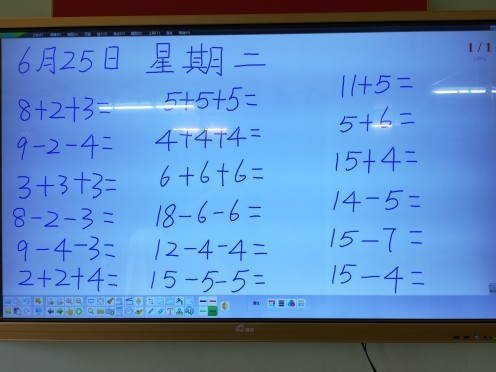 6月25日 星期二
1/1
8+2+3= 5+5+5= 11+5=
9-2-4= 4+4+4= 5+6=
3+3+3= 6+6+6= 15+4=
8-2-3= 18-6-6= 14-5=
9-4-3= 12-4-4= 15-7=
2+2+4= 15-5-5= 15-4=